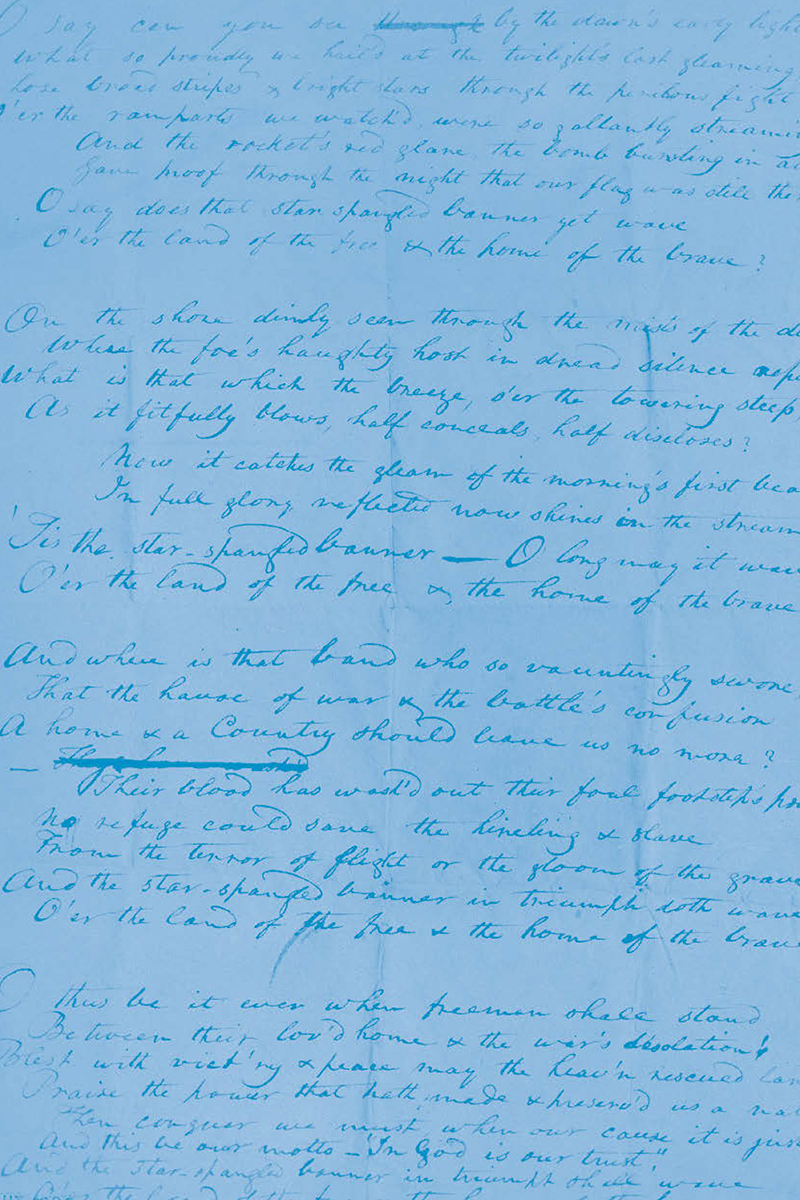 O say can you see ~~through~~ by the dawn's early light
What so proudly we hail'd at the twilight's last gleaming
hose broad stripes & bright stars through the perilous fight
O'er the ramparts we watch'd, were so gallantly streamin
And the rocket's red glare, the bomb bursting in ai
Gave proof through the night that our flag was still the
O say does that star spangled banner yet wave
O'er the land of the free & the home of the brave?
On the shore dimly seen through the mists of the de
Where the foe's haughty host in dread silence repo
What is that which the breeze, o'er the towering steep,
As it fitfully blows, half conceals, half discloses?
Now it catches the gleam of the morning's first bea
In full glory reflected now shines in the stream
'Tis the star-spangled banner — O long may it wave
O'er the land of the free & the home of the brave
And where is that band who so vauntingly swore,
That the havoc of war & the battle's confusion
A home & a Country should leave us no more?
—
Their blood has wash'd out their foul footstep's po
No refuge could save the hireling & slave
From the terror of flight or the gloom of the grave
And the star-spangled banner in triumph doth wave
O'er the land of the free & the home of the brave
O thus be it ever when freemen shall stand
Between their lov'd home & the war's desolation!
Blest with vict'ry & peace may the heav'n rescued lan
Praise the power that hath made & preserv'd us a nat
Then conquer we must, when our cause it is just
And this be our motto – "In God is our trust,"
And the star-spangled banner in triumph shall wave
O'er the land of the free & the home of the